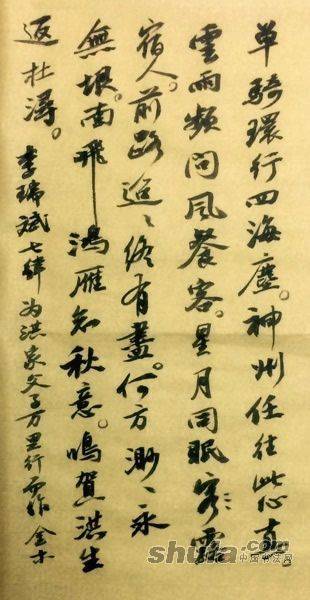 單騎環行四海塵。神州任往此心真。
雲雨頻問風餐客。星月同眠客露
宿人。前路迢〻終有盡。何方渺〻永
無垠。南飛鴻雁知秋意。鳴賀洪生
返杜潯。李瑞斌七律 为洪家父子万里行而作 金
shufa.com
中国书法网